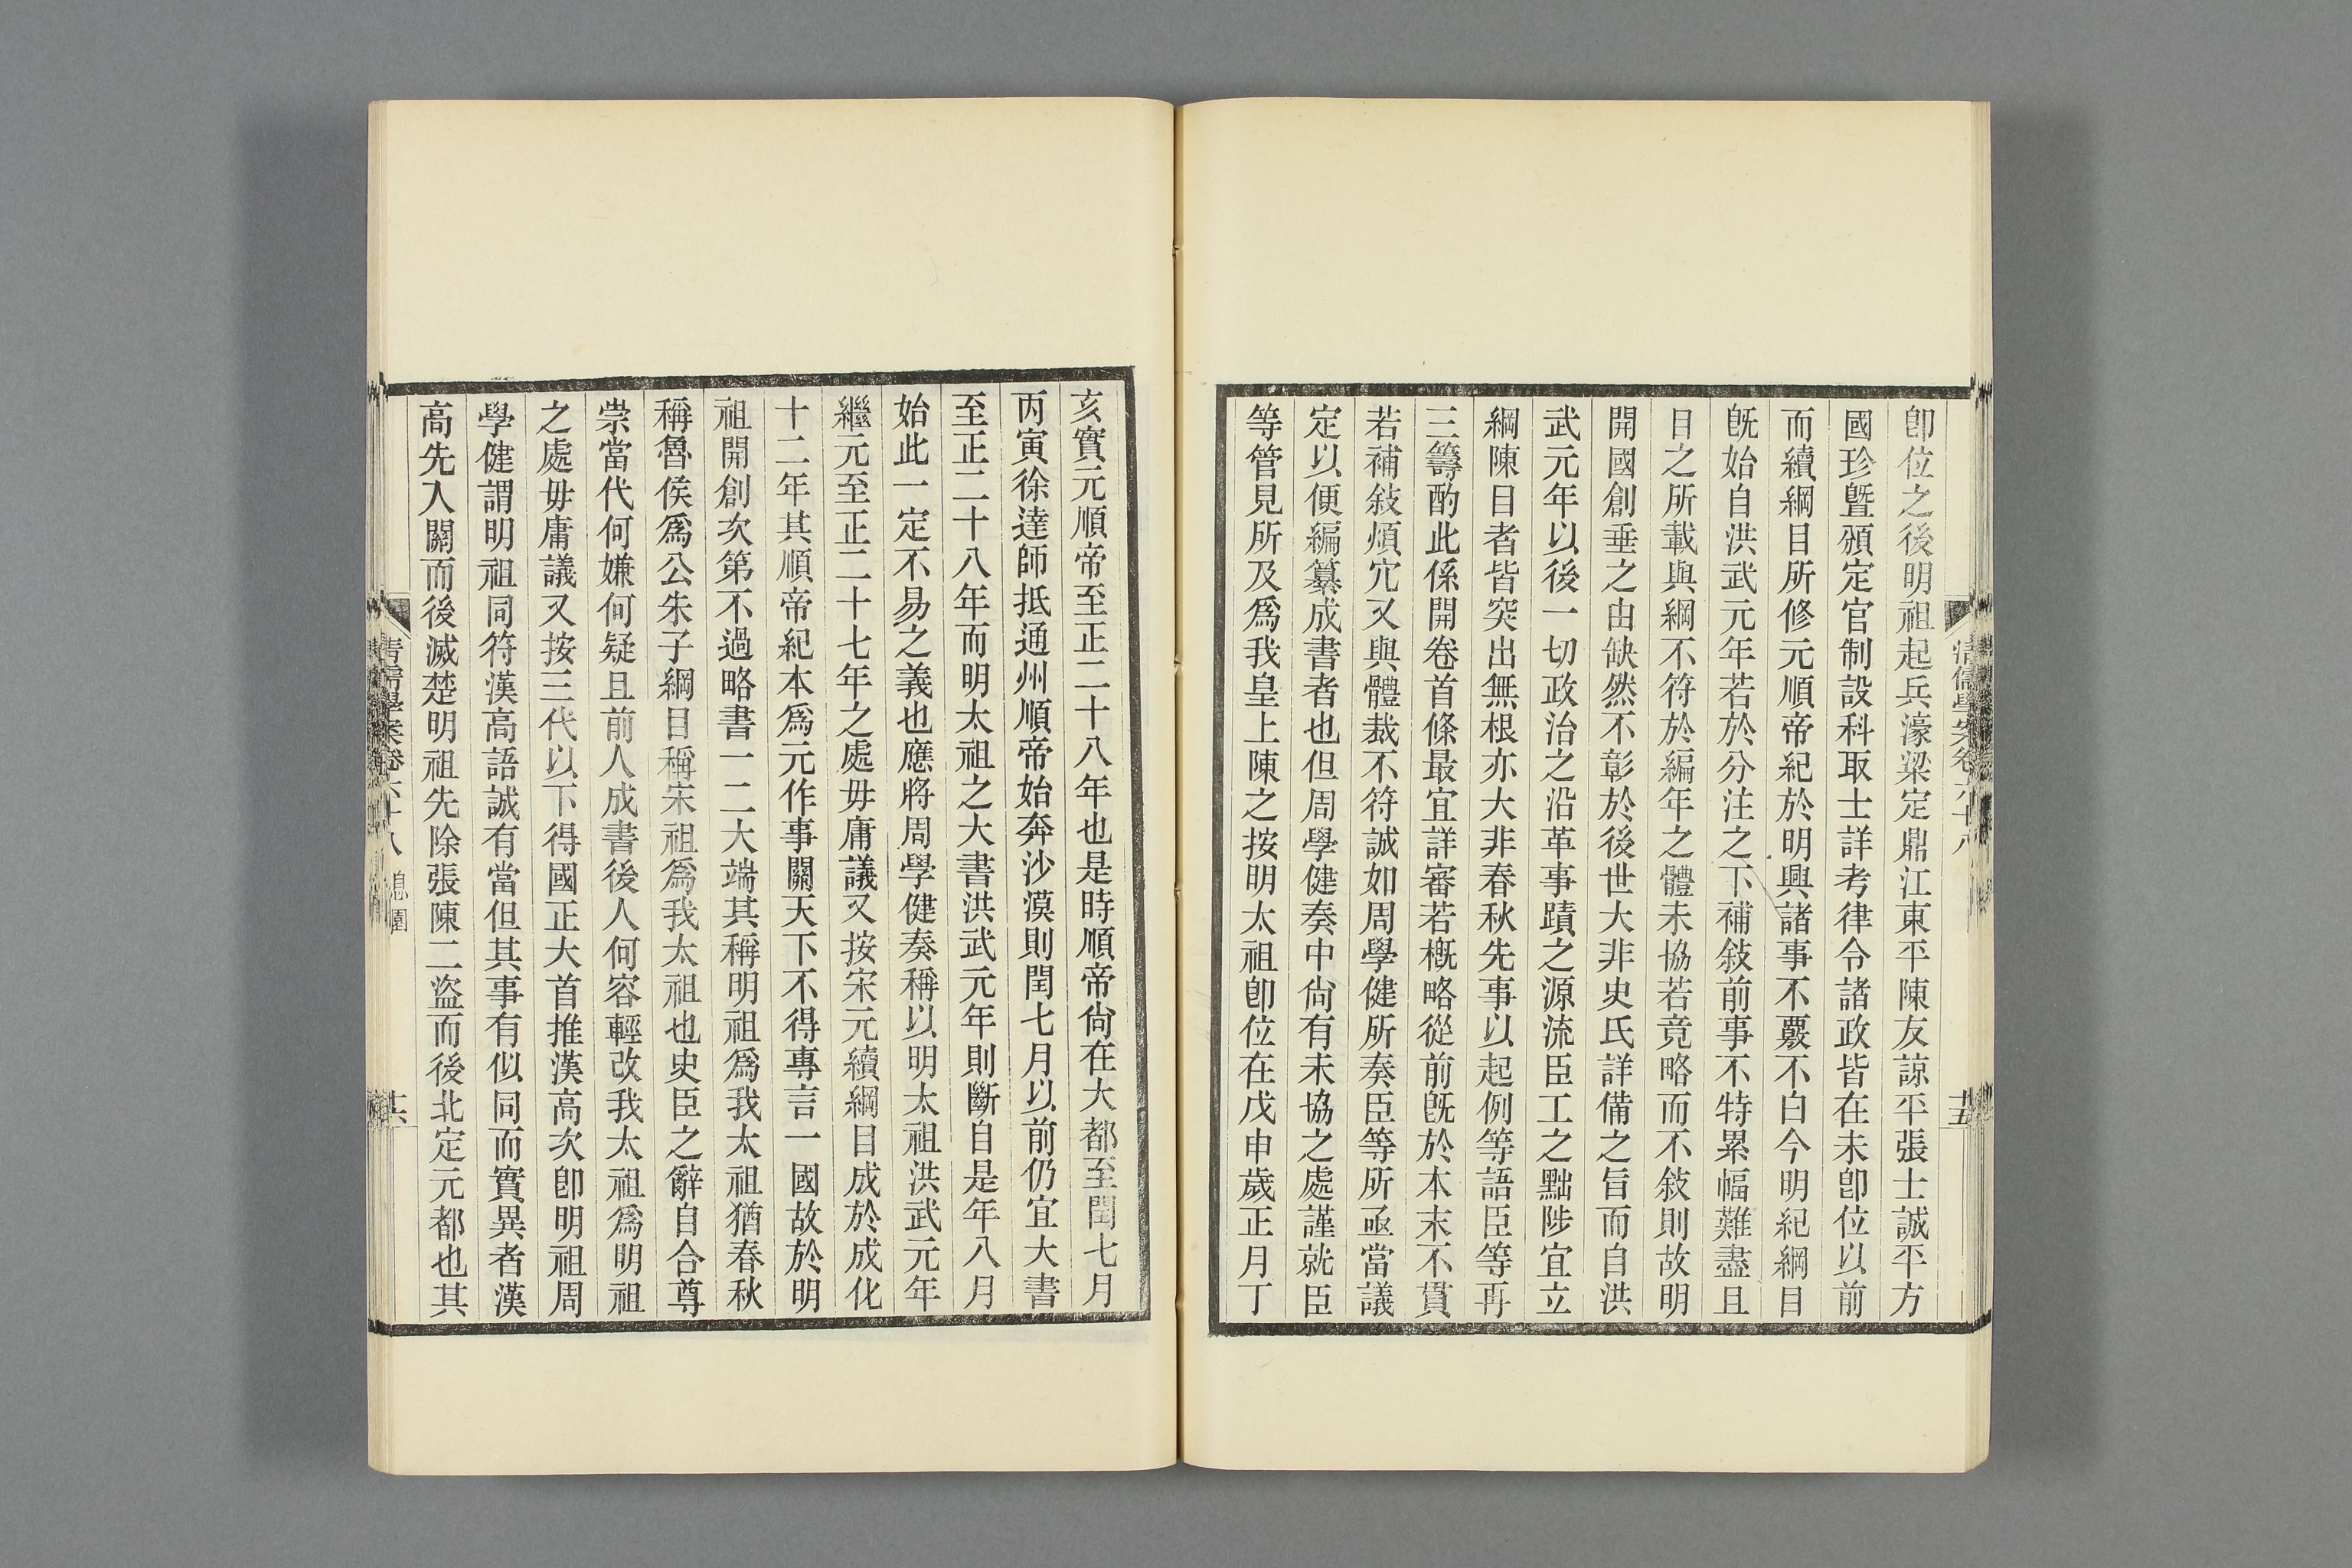 清儒學案卷六十八
十五
卽位之後明祖起兵濠梁定鼎江東平陳友諒平張士誠平方
國珍曁頒定官制設科取士詳考律令諸政皆在未卽位以前
而續綱目所修元順帝紀於明興諸事不覈不白今明紀綱目
旣始自洪武元年若於分注之下補敍前事不特累幅難盡且
目之所載與綱不符於編年之體未協若竟略而不敍則故明
開國創垂之由缺然不彰於後世大非史氏詳備之旨而自洪
武元年以後一切政治之沿革事蹟之源流臣工之黜陟宜立
綱陳目者皆突出無根亦大非春秋先事以起例等語臣等再
三籌酌此係開卷首條最宜詳審若槪略從前旣於本末不貫
若補敍煩宂又與體裁不符誠如周學健所奏臣等所亟當議
定以便編纂成書者也但周學健奏中尙有未協之處謹就臣
等管見所及爲我皇上陳之按明太祖卽位在戊申歲正月丁
亥實元順帝至正二十八年也是時順帝尙在大都至閏七月
丙寅徐達師抵通州順帝始奔沙漠則閏七月以前仍宜大書
至正二十八年而明太祖之大書洪武元年則斷自是年八月
始此一定不易之義也應將周學健奏稱以明太祖洪武元年
繼元至正二十七年之處毋庸議又按宋元續綱目成於成化
十二年其順帝紀本爲元作事關天下不得專言一國故於明
祖開創次第不過略書一二大端其稱明祖爲我太祖猶春秋
稱魯侯爲公朱子綱目稱宋祖爲我太祖也史臣之辭自合尊
崇當代何嫌何疑且前人成書後人何容輕改我太祖爲明祖
之處毋庸議又按三代以下得國正大首推漢高次卽明祖周
學健謂明祖同符漢高語誠有當但其事有似同而實異者漢
高先入關而後滅楚明祖先除張陳二盜而後北定元都也其
清儒學案卷六十八
十六